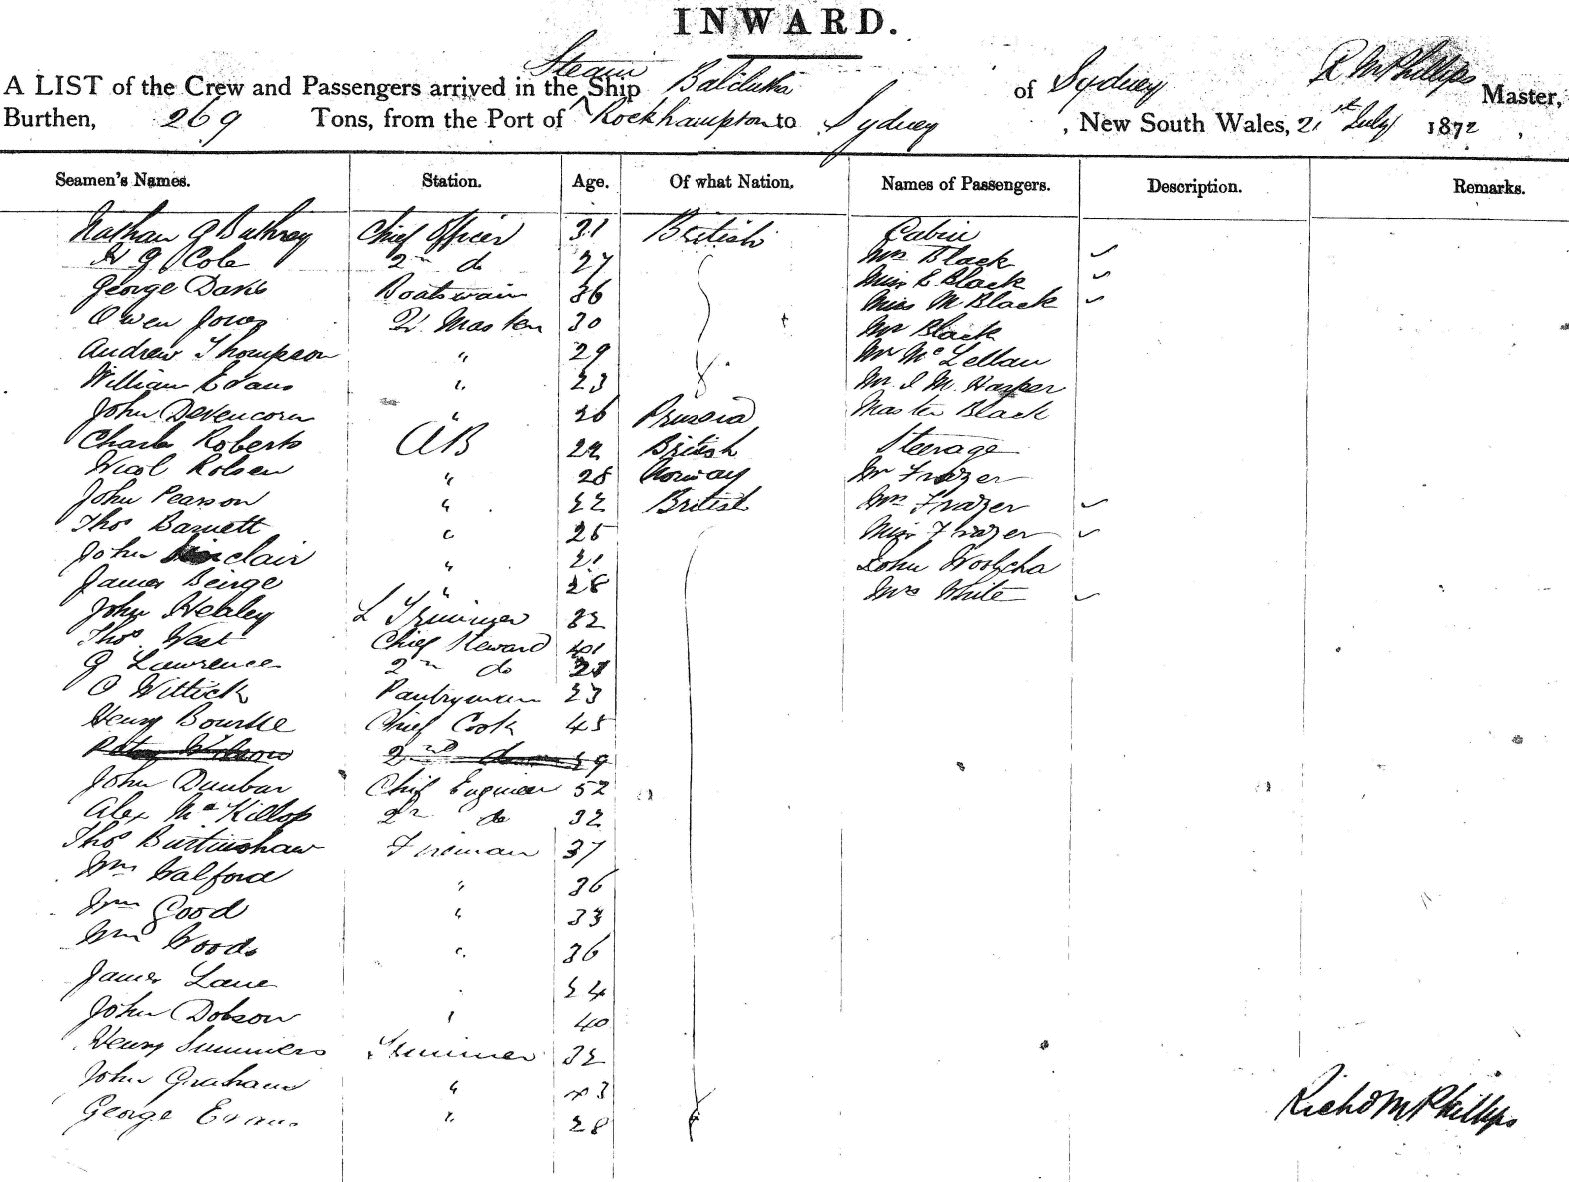 INWARD.
A LIST of the Crew and Passengers arrived in the Steam Ship Balclutha of Sydney R M Phillips Master,
Burthen, 269 Tons, from the Port of Rockhampton to Sydney, New South Wales, 21st July 1872,
Seamen's Names. Station. Age. Of what Nation. Names of Passengers. Description. Remarks.
Nathan G Chief Officer 31 British Cabin
H G Cole 2nd do 27 Mrs Black ✓
George Davis Boatswain 36 Miss E. Black ✓
Owen Jones Qr Master 30 Miss M. Black ✓
Andrew Thompson " 29 Mr Black
William Evans " 23 Mr McLellan
John " 26 Prussia Mr J. M. Harper
Charles Roberts AB 22 British Master Black
Nicol Rolsen " 28 Norway Steerage
John Pearson " 22 British Mr Frazer
Thos Barnett " 25 Mrs Frazer ✓
John Sinclair " 21 Miss Frazer ✓
James Beinge " 28 John
John Healey L Trimmer 32 Mrs White ✓
Thos West Chief Steward 41
G Lawrence 2nd do
C Wittick Pantryman 23
Henry Bourke Chief Cook 45
2nd do 29
John Dunbar Chief Engineer 52
Alex McKillop 2nd do 32
Thos Burtinshaw Fireman 37
Wm Walford " 36
Wm Good " 33
Wm Woods " 36
James Lane 24
John Dobson " 40
Henry Summers Trimmer 32
John Graham "
George Evans " 28
Richd M Phillips